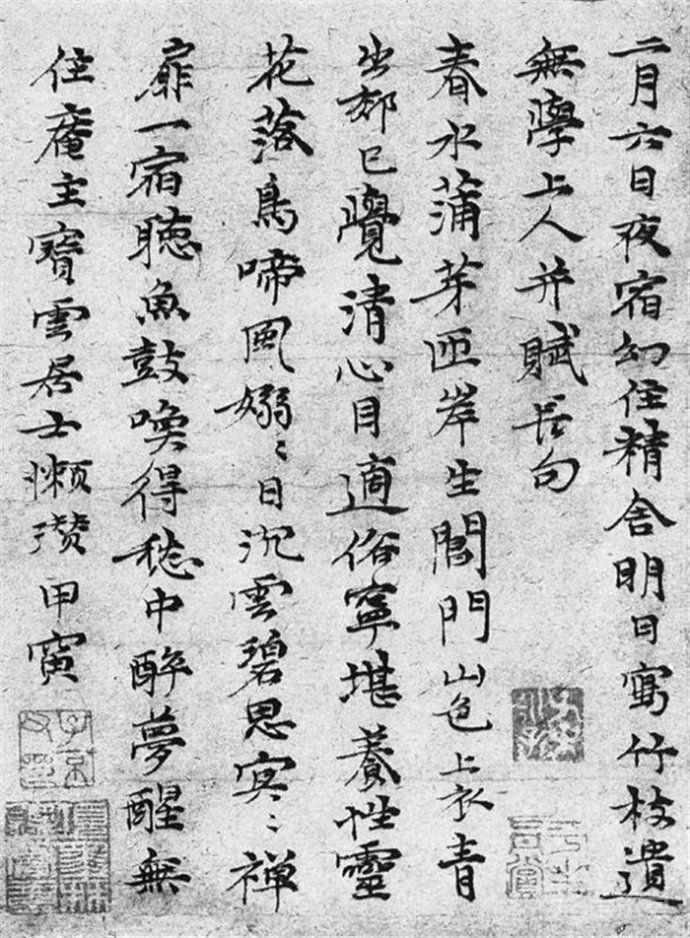 二月六日夜宿幻住精舍明日寫竹枝遺
無學上人并賦長句
春水蒲芽匝岸生閶門山色上衣青
出郊已覺清心目適俗寧堪養性靈
花落鳥啼風嫋〻日沉雲碧思㝠〻禅
扉一宿聴魚鼓喚得愁中醉夢醒無
住庵主寶雲居士懶瓚甲寅